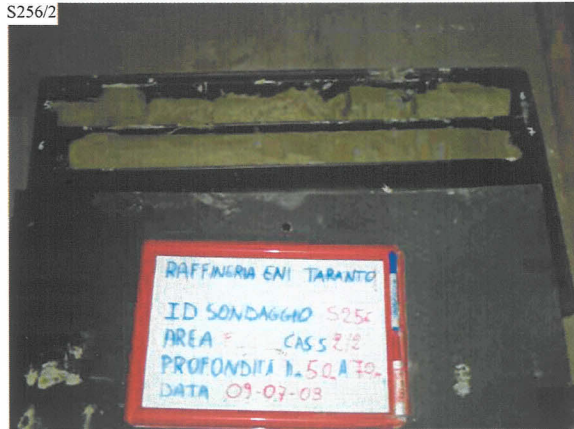 S256/2
5 6
6 7
RAFFINERIA ENI TARANTO
ID SONDAGGIO S256
AREA F CASS 2/2
PROFONDITÀ D. 5.0 A 7.0
DATA 09-07-03